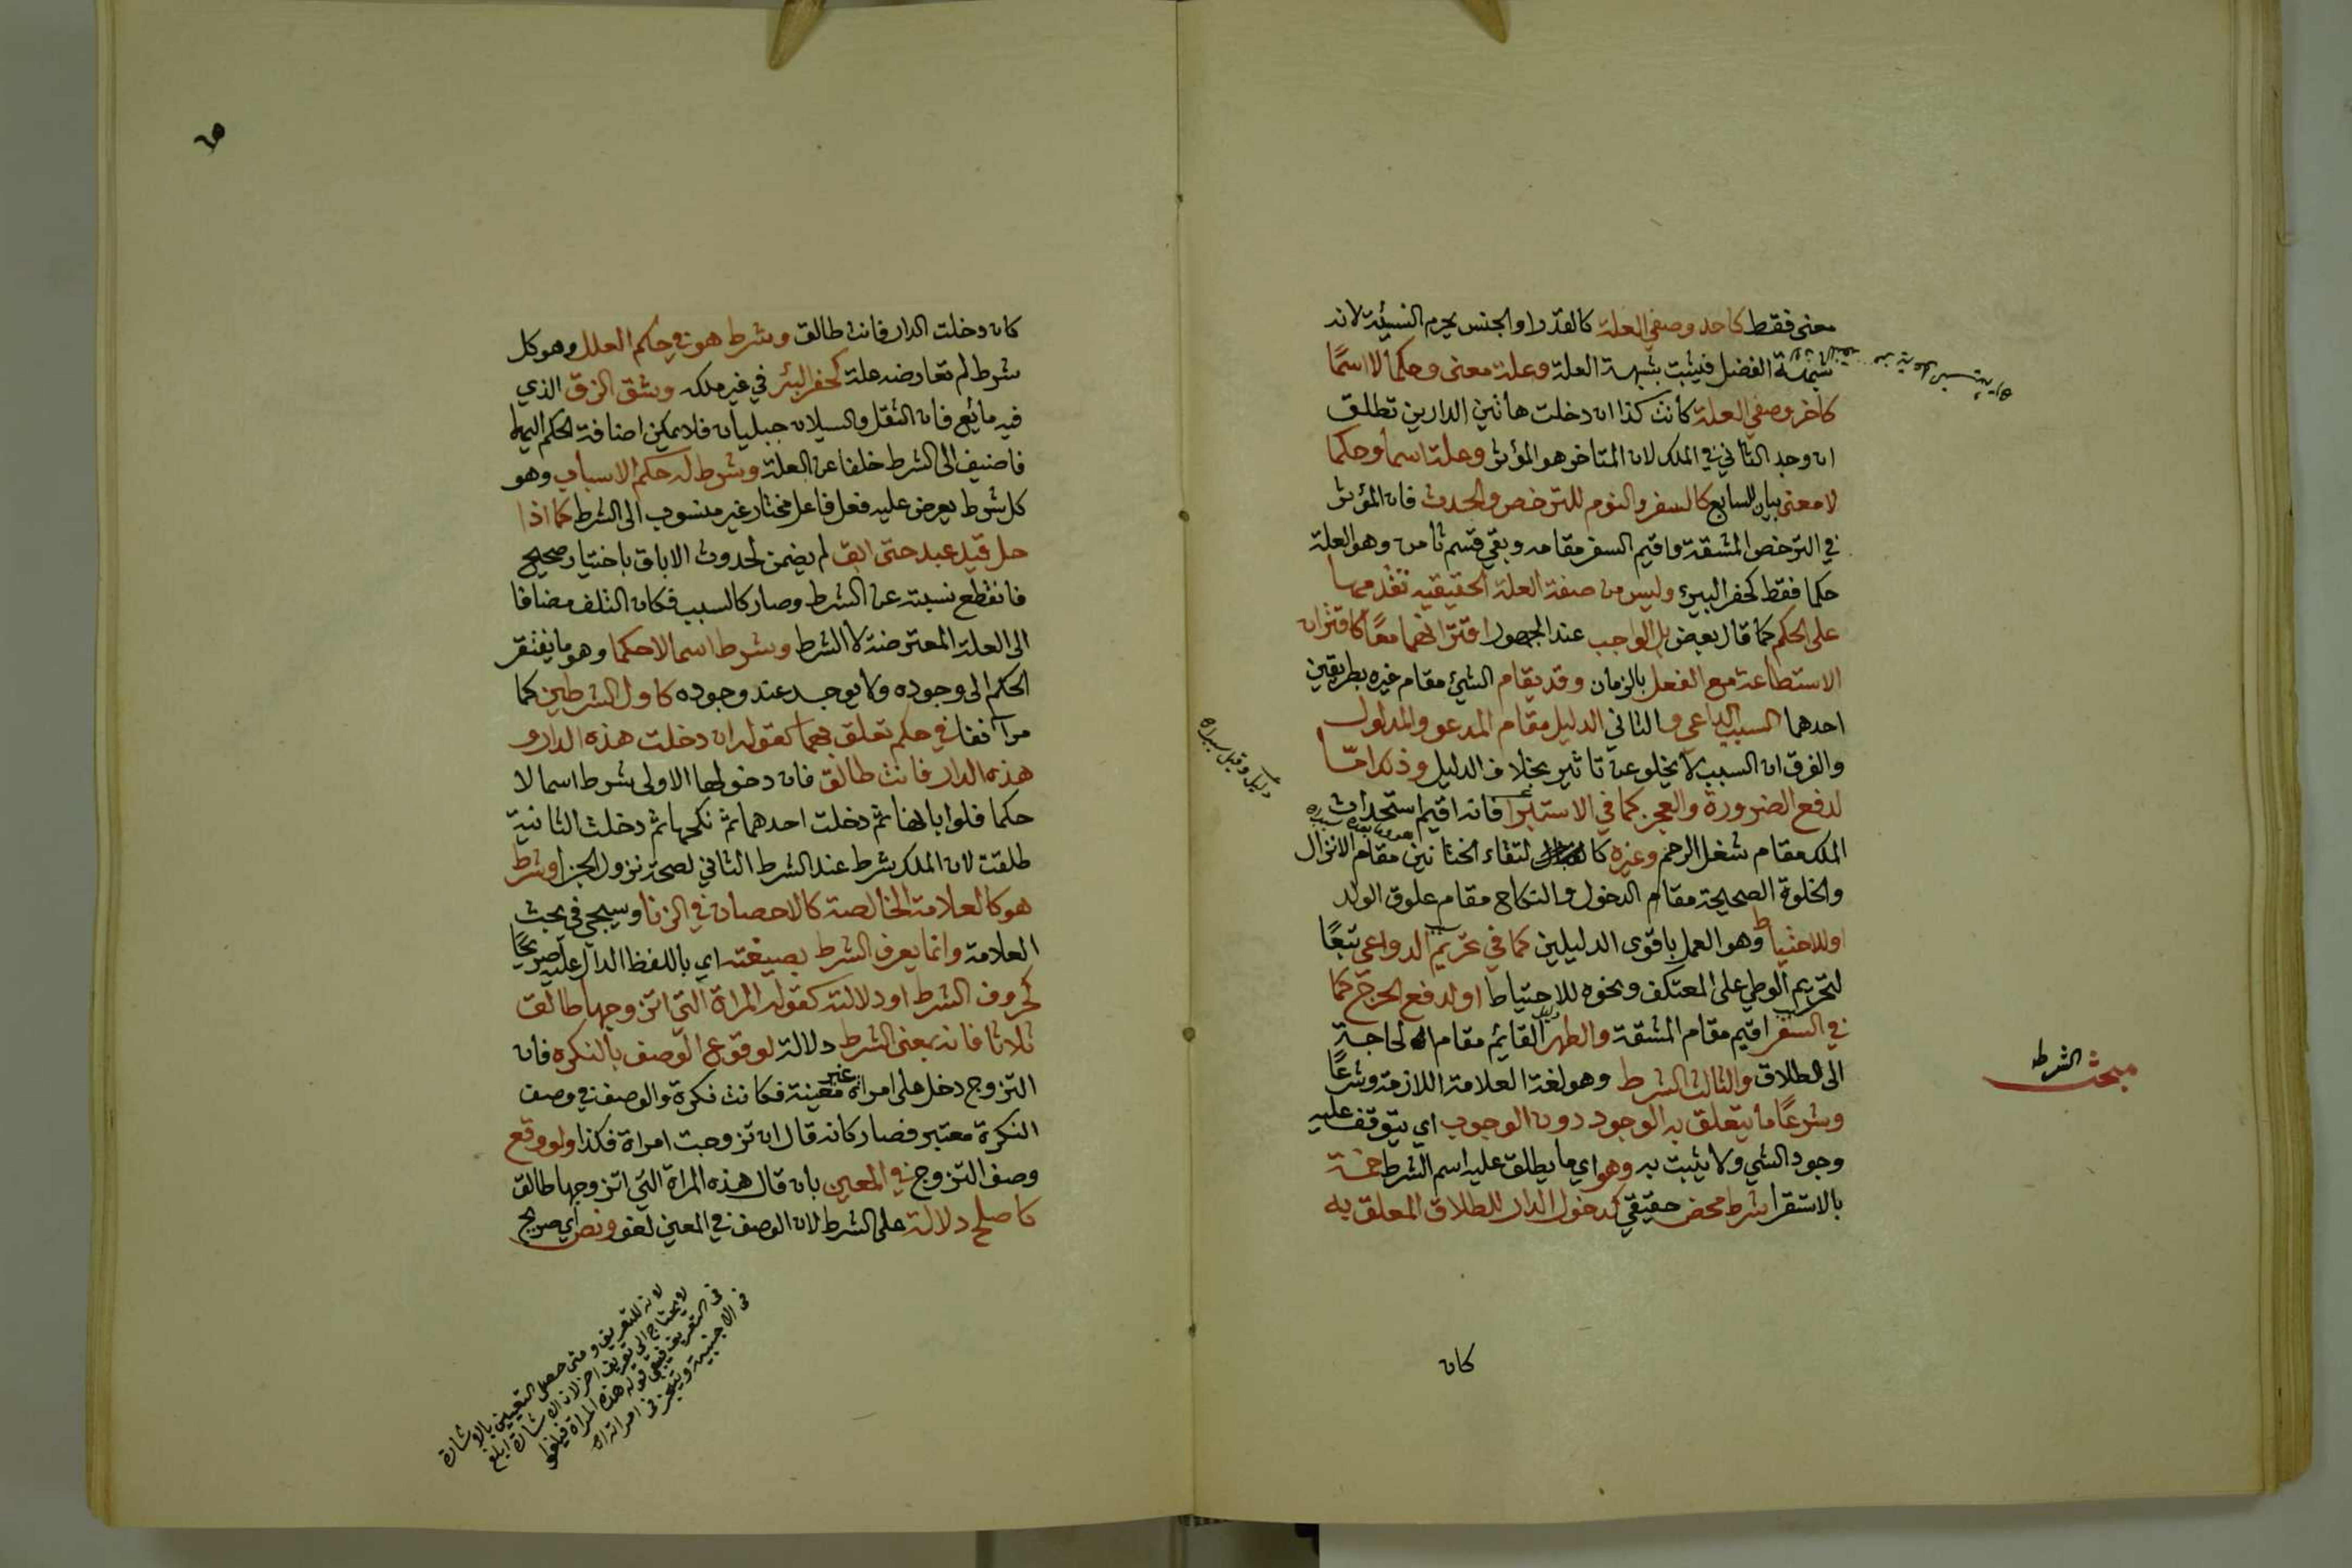 معنى فقط كاحد وصفي العلة كالقدر او الجنس يحرم النسيئة لانه
شبهة الفضل فيثبت بشبهة العلة وعلة معنى وحكما لا اسمًا
كآخر وصفي العلة كانت كذا ان دخلت هاتين الدارين تطلق
ان وجد الثاني في الملك لان المتاخر هو المؤثر وعلة اسما وحكما
لا معنى بيان للسابع كالسفر والنوم للترخص والحدث فان المؤثر
في الترخص المشقة واقيم السفر مقامه وبقي قسم ثامن وهو العلة
حكما فقط كحفر البير وليس من صفة العلة الحقيقيه تقدمها
على الحكم كما قال بعض بل الواجب عند الجمهور اقترانهما معًا كاقتران
الاستطاعة مع الفعل بالزمان وقد يقام الشئ مقام غيره بطريقين
احدهما السبب الداعي والثاني الدليل مقام المدعو والمدلول
والفرق ان السبب لا يخلو عن تاثير بخلاف الدليل وذلك امّا
لدفع الضرورة والعجز كما في الاستبرا فانه اقيم استحداث
الملك مقام شغل الرحم وغيره كا لتقاء الختانين مقام الانزال
والخلوة الصحيحة مقام الدخول والنكاح مقام علوق الولد
او للاحتياط وهو العمل باقوى الدليلين كما في تحريم الدواعي تبعًا
لتحريم الوطي على المعتكف ونحوه للاحتياط او لدفع الحرج كما
في السفر اقيم مقام المشقة والطهر القائم مقام لحاجة
الى الطلاق والثالث الشرط وهو لغة العلامة اللازمة وشرعًا
وشرعًا ما يتعلق به الوجود دون الوجوب اي يتوقف عليه
وجود الشي ولا يثبت به وهو اي ما يطلق عليه اسم الشرط خمسة
بالاستقرا شرط محض حقيقي كدخول الدار للطلاق المعلق به
مبحث الشرط
دليل وقيل سبب اه
كان
٦٥
كان دخلت الدار فانت طالق وشرط هو في حكم العلل وهو كل
شرط لم تعارضه علة كحفر البئر في غير ملكه وشق الزق الذي
فيه مائع فان الثقل والسيلان جبليان فلا يمكن اضافة الحكم اليهما
فاضيف الى الشرط خلفا عن العلة وشرط له حكم الاسباب وهو
كل شرط يعرض عليه فعل فاعل مختار غير منسوب الى الشرط كما اذا
حل قيد عبد حتى ابق لم يضمن لحدوث الاباق باختيار صحيح
فانقطع نسبته عن الشرط وصار كالسبب فكان التلف مضافا
الى العلة المعترضة لا الشرط وشرط اسما لا حكما وهو ما يفتقر
الحكم الى وجوده ولا يوجد عند وجوده كاول الشرطين كما
مر آنفا في حكم تعلق بهما كقوله ان دخلت هذه الدار و
هذه الدار فانت طالق فان دخولها الاولى شرط اسما لا
حكما فلو ابانها ثم دخلت احدهما ثم نكحها ثم دخلت الثانية
طلقت لان الملك شرط عند الشرط الثاني لصحة نزول الجزا وشرط
هو كالعلامة الخالصة كالاحصان في الزنا وسيجي في بحث
العلامة وانما يعرف الشرط بصيغته اي باللفظ الدال عليه صريحًا
كحروف الشرط او دلالته كقوله المراة التي اتزوجها طالق
ثلاثا فانه بمعنى الشرط دلالة لوقوع الوصف بالنكره فان
التزوج دخل على امراة غير معينة فكانت نكرة والوصف في وصف
النكرة معتبر فصار كانه قال ان تزوجت امراة فكذا ولو وقع
وصف التزوج في المعين بان قال هذه المراة التي اتزوجها طالق
لما صلح دلالة على الشرط لان الوصف في المعين لغو ونص اي صريح
لانه للتعريف ومتى حصل التعيين بالاشارة
لا يحتاج الى تعريف اخر لان الاشارة ابلغ
في التعريف فبقي قوله هذه المراة فيلغوا
في الاجنبية ويتنجز في امراته اه